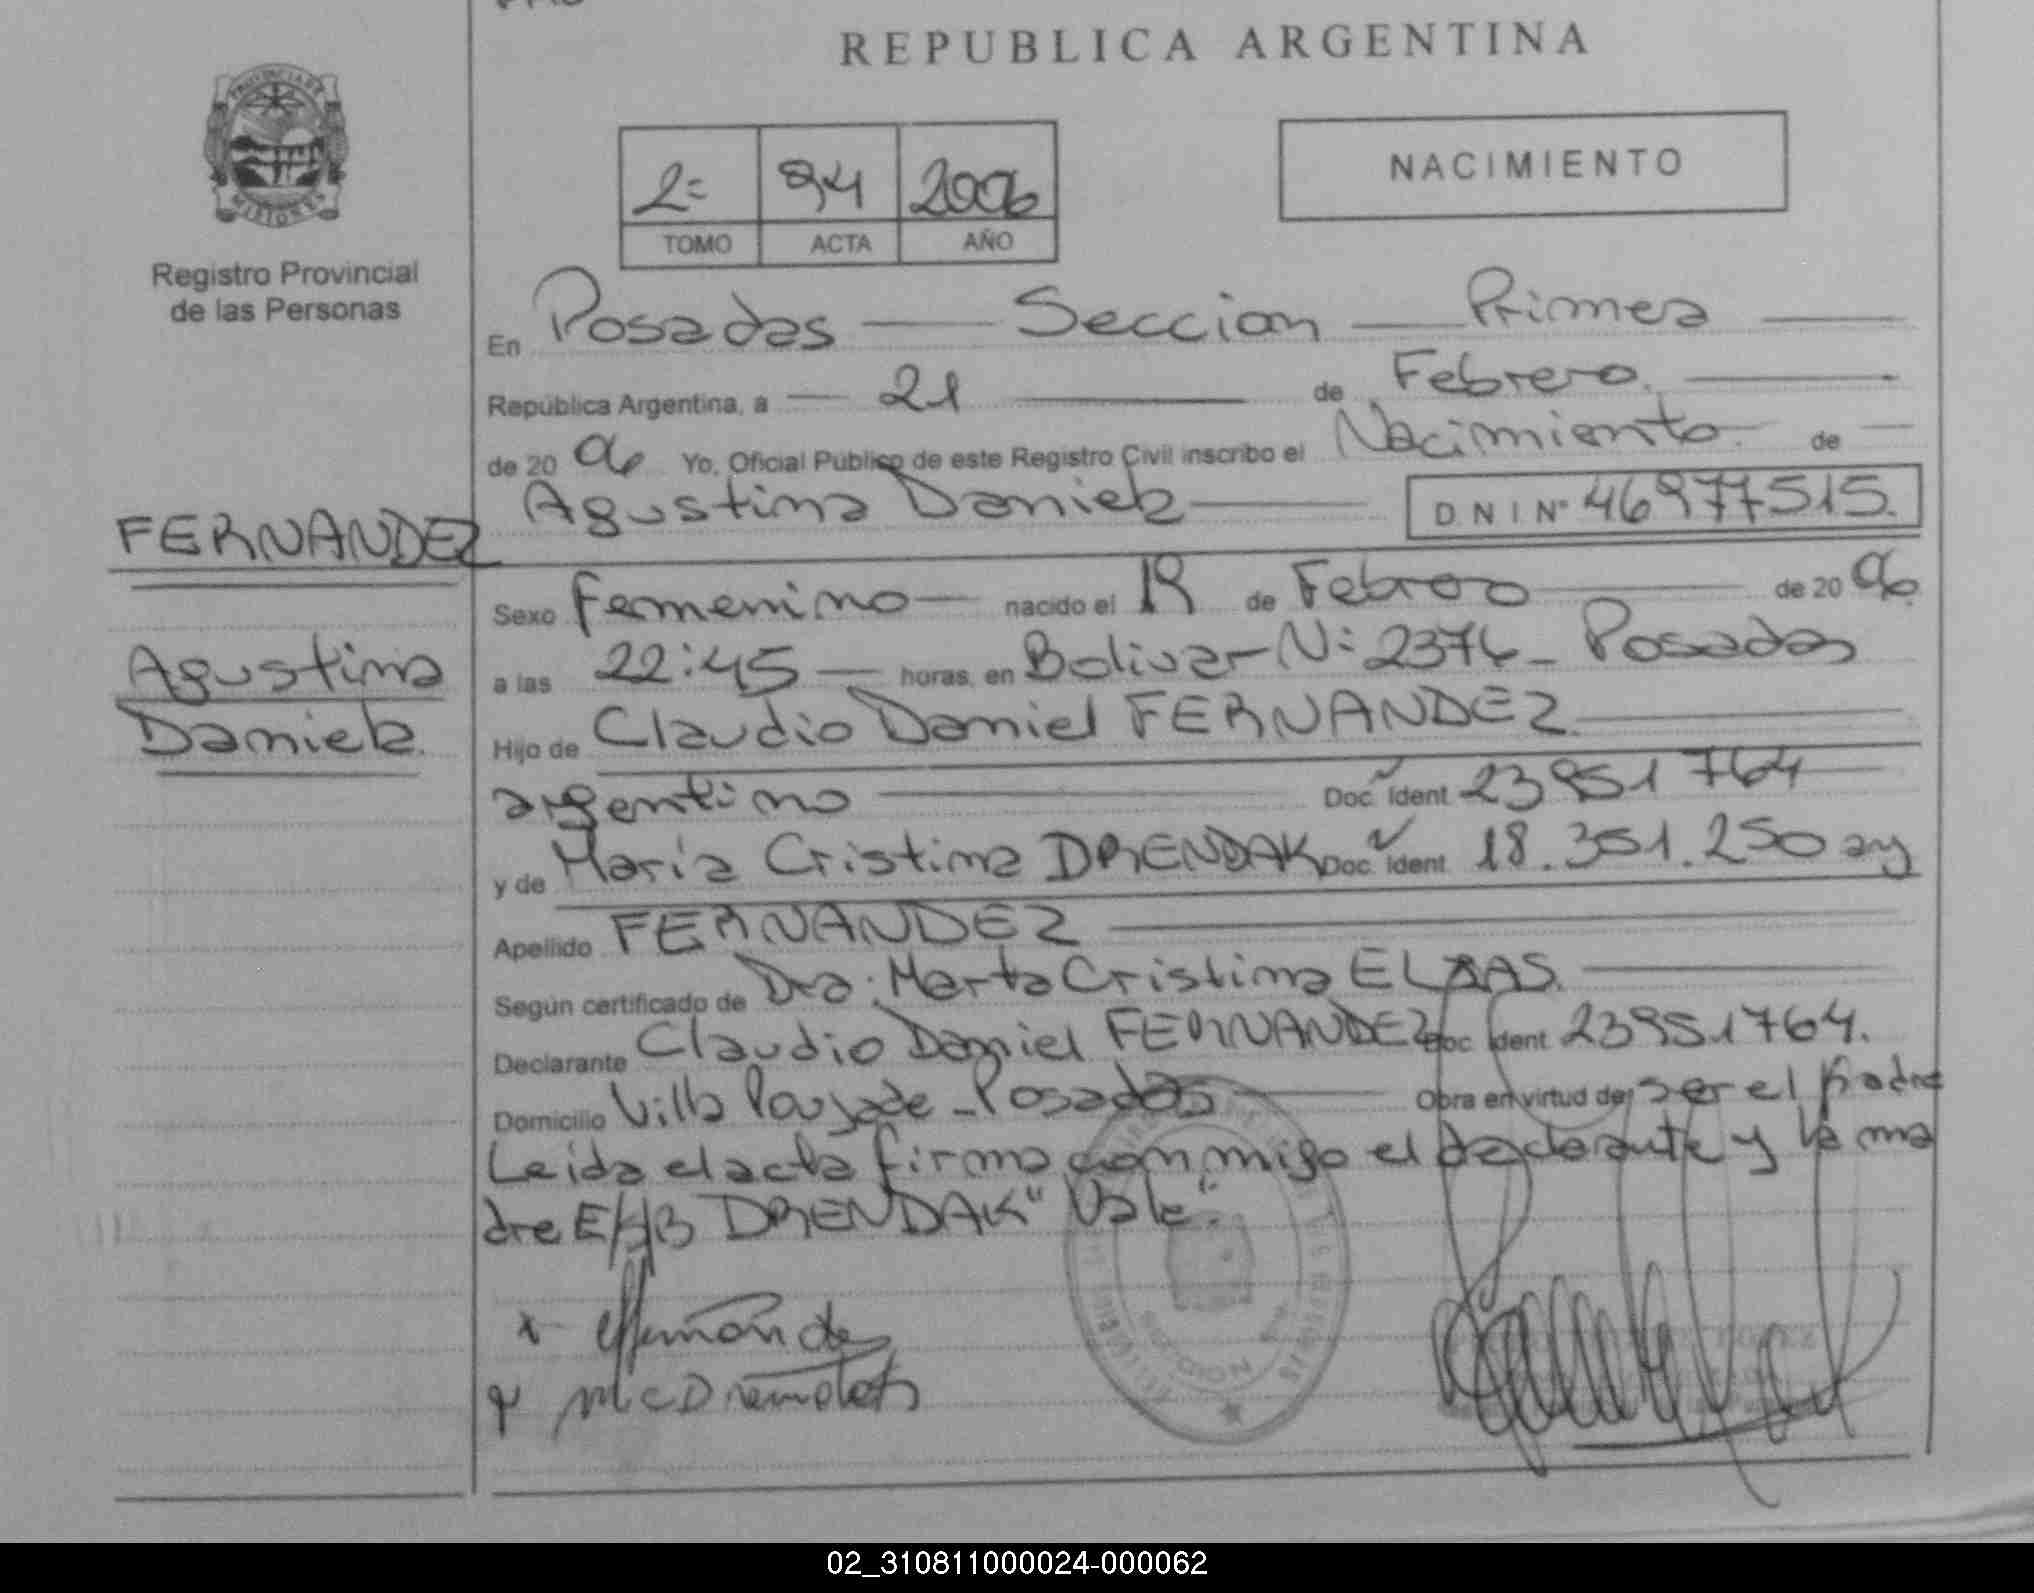 REPUBLICA ARGENTINA
PROVINCIA DE
MISIONES
Registro Provincial
de las Personas
2º 94 2006
TOMO ACTA AÑO
NACIMIENTO
En Posadas — Seccion — Primera —
República Argentina, a — 21 — de Febrero. —
de 20 06 Yo, Oficial Público de este Registro Civil inscribo el Nacimiento de —
Agustina Daniela — D N I Nº 46977515.
FERNANDEZ
Agustina
Daniela.
Sexo Femenino — nacido el 19 de Febrero — de 20 06
a las 22:45 — horas, en Bolivar Nº 2376 - Posadas
Hijo de Claudio Daniel FERNANDEZ —
argentino — Doc. Ident. 23951764
y de María Cristina DRENDAK Doc. Ident. 18.351.250 ay
Apellido FERNANDEZ —
Según certificado de Dra. Marta Cristina —
Declarante Claudio Daniel FERNANDEZ Doc. Ident. 23951764.
Domicilio Villa Poujade - Posadas — Obra en virtud de: ser el padre
Leida el acta firma conmigo el declarante y la ma
dre DRENDAK" Vale".
02_310811000024-000062